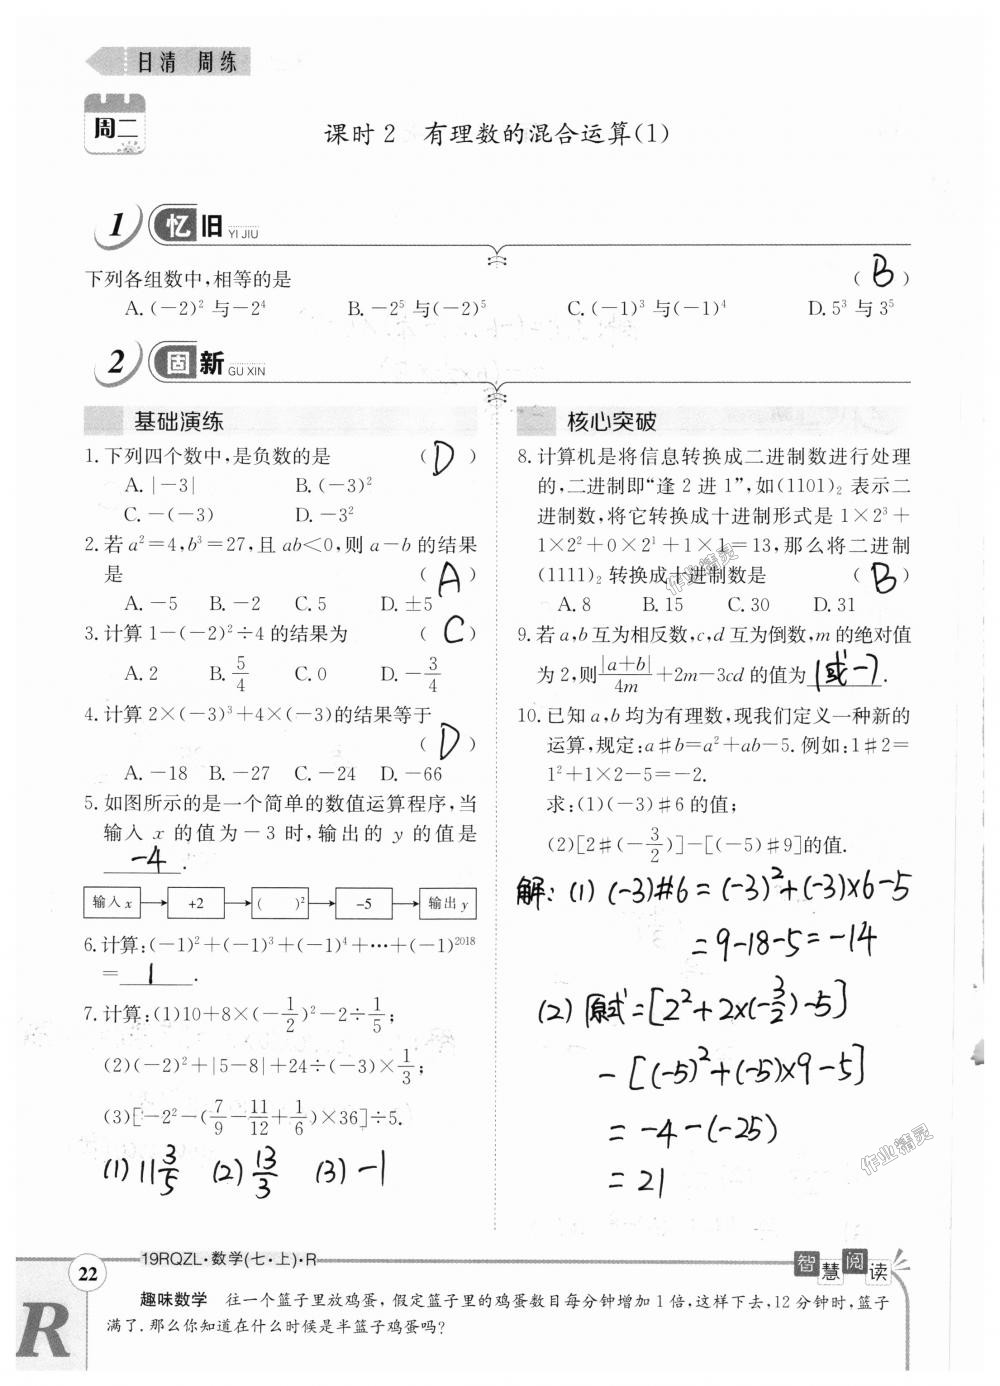 日清 周练
周二
课时2 有理数的混合运算(1)
1 忆旧 YI JIU
下列各组数中,相等的是 ( B )
A. (－2)² 与－2⁴ B. －2⁵ 与(－2)⁵ C. (－1)³ 与(－1)⁴ D. 5³ 与 3⁵
2 固新 GU XIN
基础演练
1. 下列四个数中,是负数的是 ( D )
A. |－3| B. (－3)²
C. －(－3) D. －3²
2. 若 a²＝4,b³＝27,且 ab＜0,则 a－b 的结果
是 ( A )
A. －5 B. －2 C. 5 D. ±5
3. 计算 1－(－2)²÷4 的结果为 ( C )
A. 2 B. 5/4 C. 0 D. －3/4
4. 计算 2×(－3)³＋4×(－3)的结果等于
( D )
A. －18 B. －27 C. －24 D. －66
5. 如图所示的是一个简单的数值运算程序,当
输入 x 的值为－3 时,输出的 y 的值是
－4 .
输入 x +2 ( )² －5 输出 y
6. 计算:(－1)²＋(－1)³＋(－1)⁴＋…＋(－1)²⁰¹⁸
＝ 1 .
7. 计算:(1)10＋8×(－1/2)²－2÷1/5;
(2)(－2)²＋|5－8|＋24÷(－3)×1/3;
(3)[－2²－(7/9－11/12＋1/6)×36]÷5.
(1) 11 3/5 (2) 13/3 (3) －1
核心突破
8. 计算机是将信息转换成二进制数进行处理
的,二进制即“逢 2 进 1”,如(1101)₂ 表示二
进制数,将它转换成十进制形式是 1×2³＋
1×2²＋0×2¹＋1×1＝13,那么将二进制
(1111)₂ 转换成十进制数是 ( B )
A. 8 B. 15 C. 30 D. 31
9. 若 a,b 互为相反数,c,d 互为倒数,m 的绝对值
为 2,则|a＋b|/4m＋2m－3cd 的值为 1或－7 .
10. 已知 a,b 均为有理数,现我们定义一种新的
运算,规定:a♯b＝a²＋ab－5. 例如:1♯2＝
1²＋1×2－5＝－2.
求:(1)(－3)♯6 的值;
(2)[2♯(－3/2)]－[(－5)♯9]的值.
解:(1) (－3)#6＝(－3)²＋(－3)×6－5
＝9－18－5＝－14
(2) 原式＝[2²＋2×(－3/2)－5]
－[(－5)²＋(－5)×9－5]
＝－4－(－25)
＝21
作业精灵
作业精灵
19RQZL·数学(七·上)·R
智慧阅读
22
R
趣味数学 往一个篮子里放鸡蛋,假定篮子里的鸡蛋数目每分钟增加 1 倍,这样下去,12 分钟时,篮子
满了. 那么你知道在什么时候是半篮子鸡蛋吗?